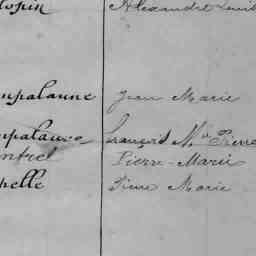 lopin Alexandre Louis
mpalanne Jean Marie
mpalanne François M.ie Pierre
ntrel Pierre-Marie
pelle Pierre Marie